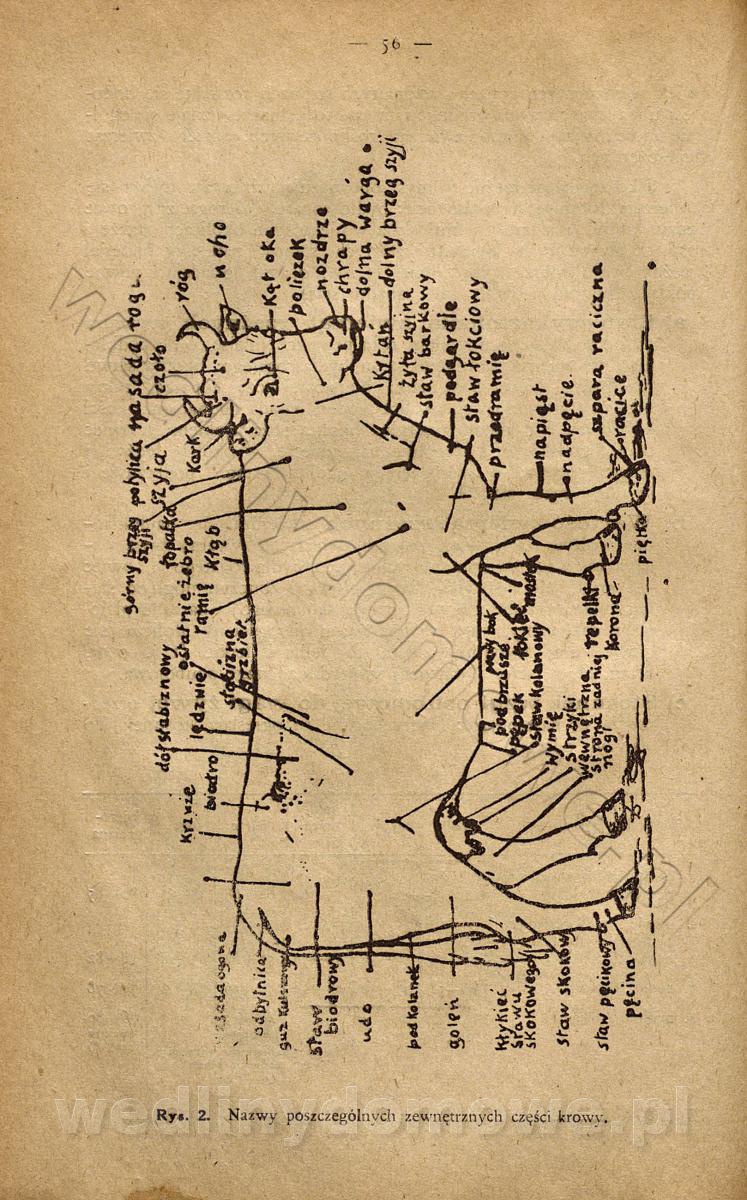 — 56 —
górny brzeg
szyji
potylica
nasada rogu
czoło
róg
ucho
Kąt oka
policzek
nozdrze
chrapy
dolna warga
dolny brzeg szyji
Krtań
żyła szyjna
staw barkowy
podgardle
staw łokciowy
przedramię
napięst
nadpęcie
szpara raciczna
racice
piętka
Kark
szyja
łopatka
Kłąb
ostatnie żebro
ramię
słabizna
grzbiet
lędźwie
dół słabiznowy
biodro
krzyże
nasada ogona
odbytnica
guz kulszowy
staw
biodrowy
udo
podkolanek
goleń
kłykieć
stawu
skokowego
staw skokowy
staw pęcinowy
pęcina
prawy bok
podbrzusze
pępek
łokieć
mostek
staw kolanowy
wymię
strzyki
wewnętrzna
strona zadniej
nogi
repelki
korona
Rys. 2. Nazwy poszczególnych zewnętrznych części krowy.
wedlinydomowe.pl
wedlinydomowe.pl